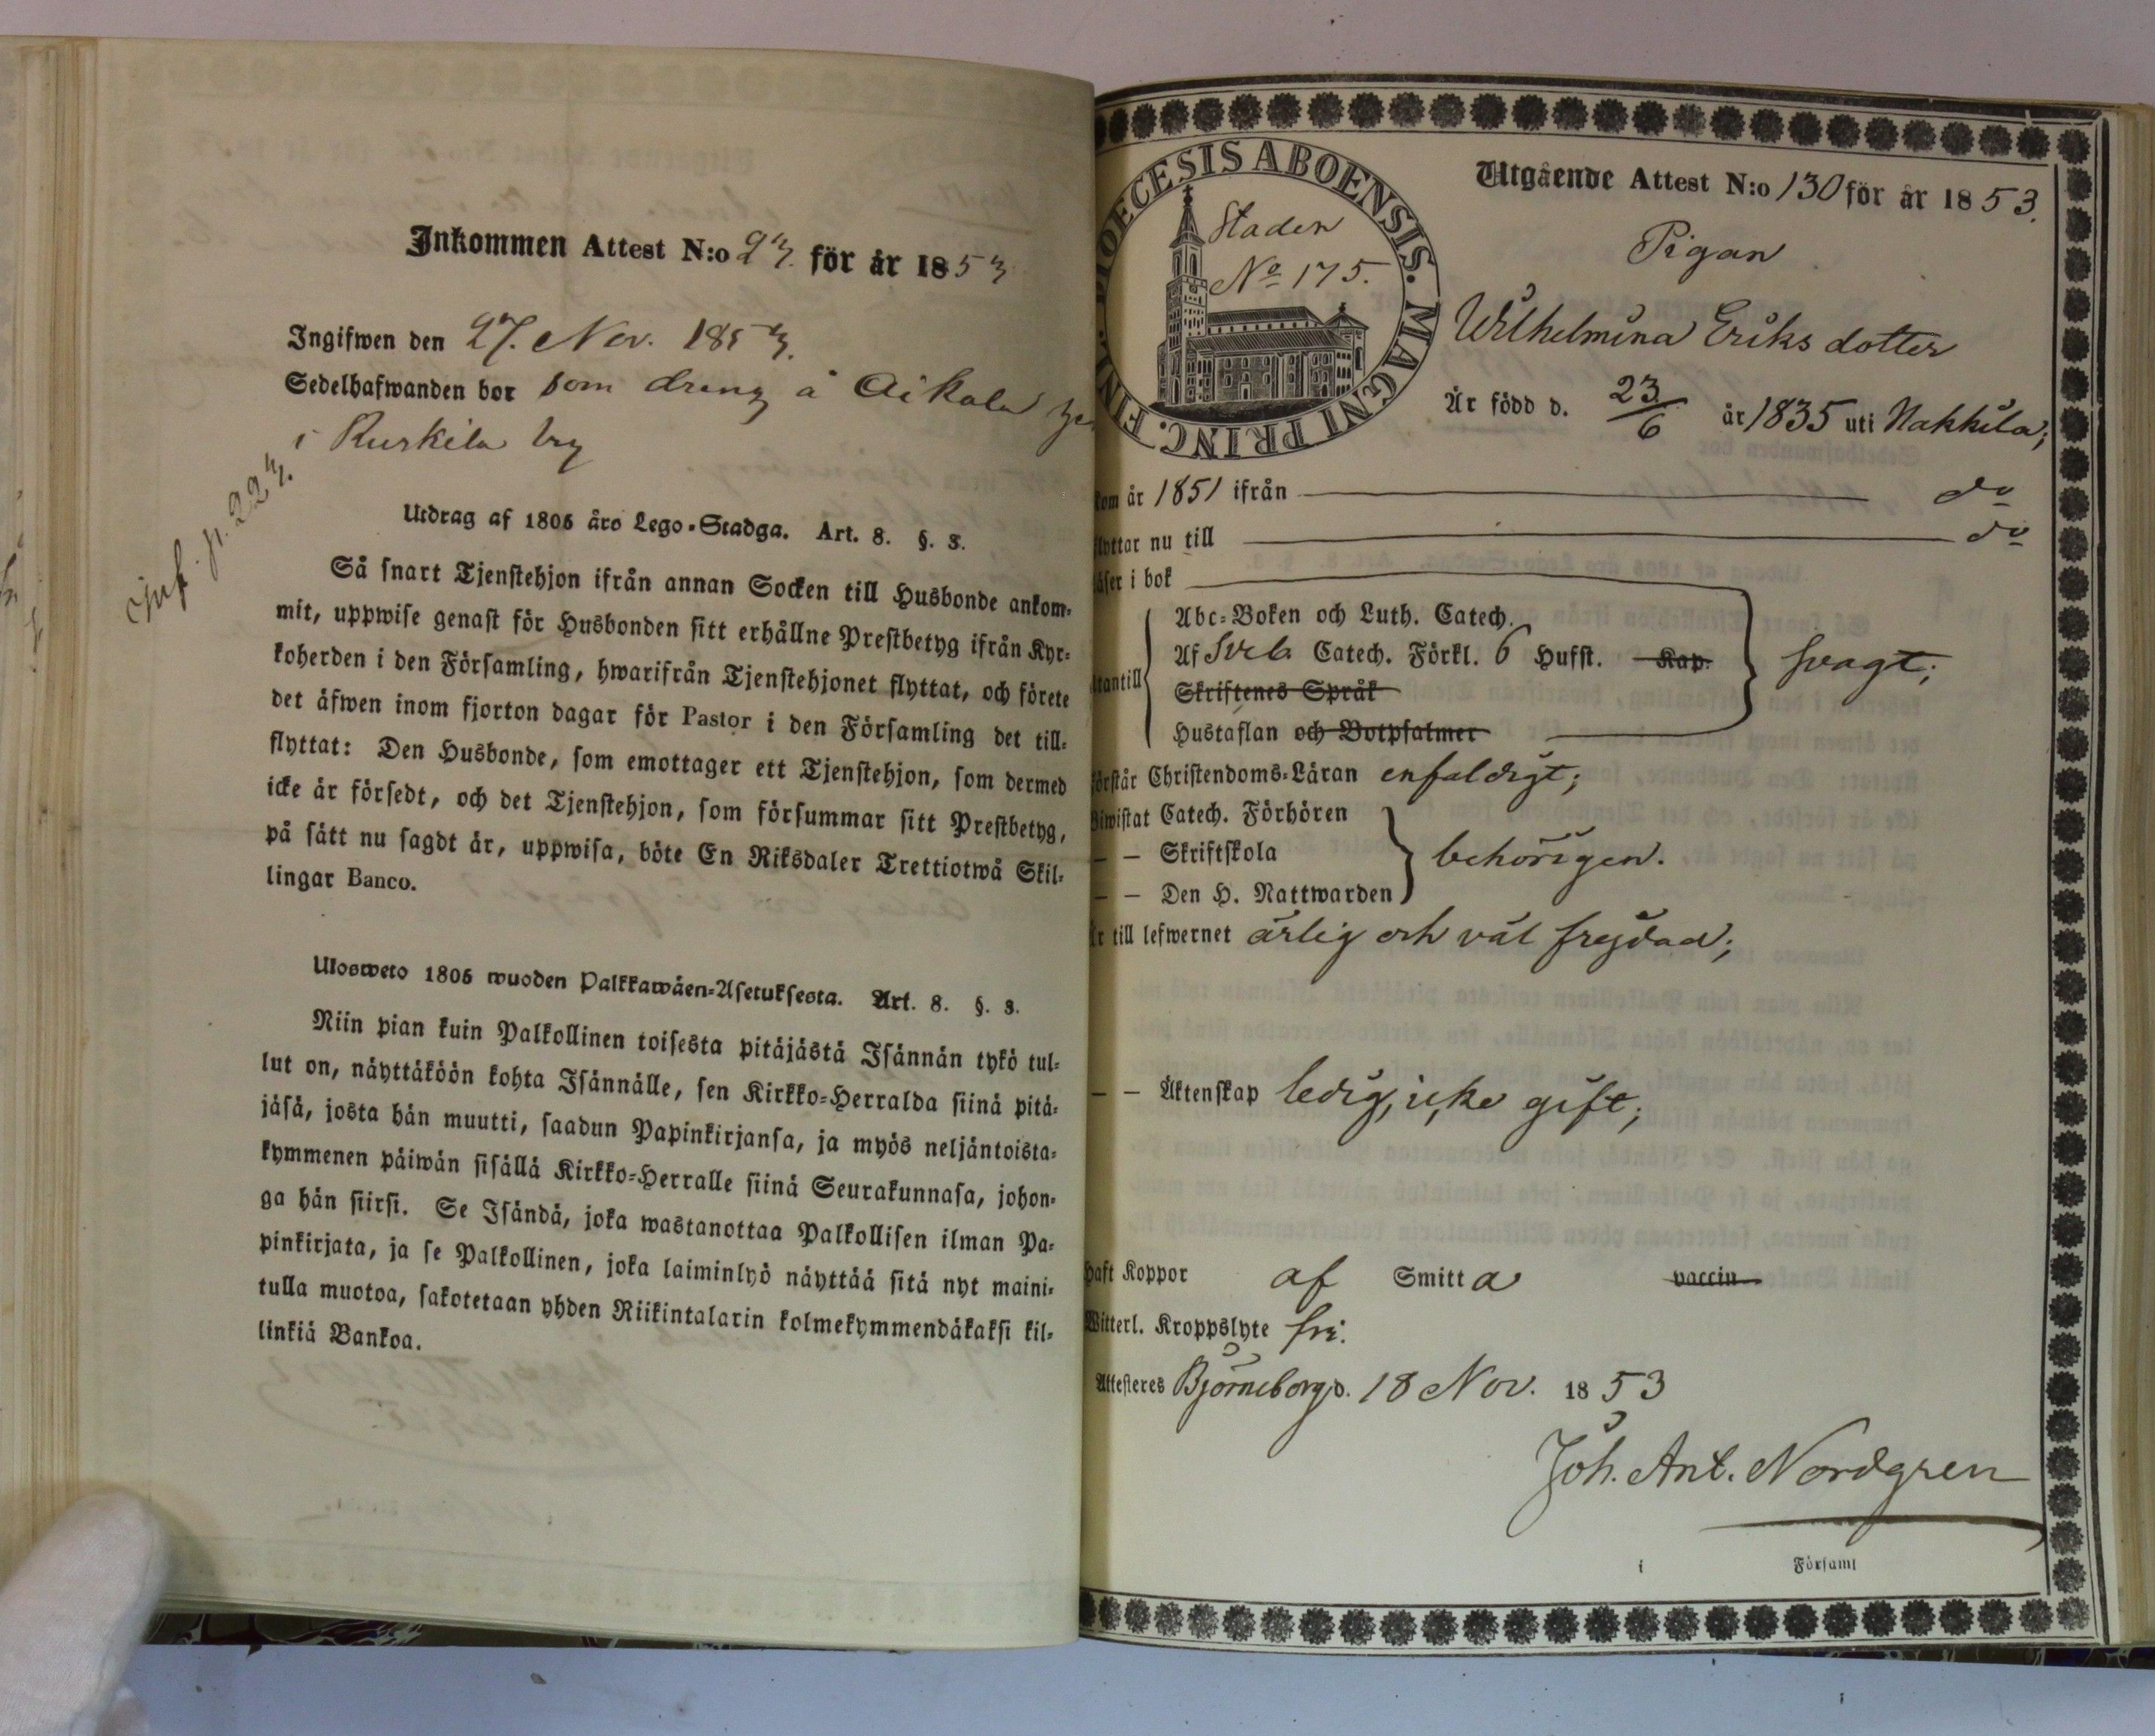 Inkommen Attest N:o 93. för år 1853
Ingifwen den 27. Nov. 1853.
Sedelhafwanden bor som dreng å Aikala
i Ruskila by
jnf. p. 223.
Utdrag af 1805 åro Lego-Stadga. Art. 8. §. 8.
Så snart Tjenstehjon ifrån annan Socken till Husbonde ankom-
mit, uppwise genast för Husbonden sitt erhållne Prestbetyg ifrån Kyr-
koherden i den Församling, hwarifrån Tjenstehjonet flyttat, och förete
det äfwen inom fjorton dagar för Pastor i den Församling det till-
flyttat: Den Husbonde, som emottager ett Tjenstehjon, som dermed
icke är försedt, och det Tjenstehjon, som försummar sitt Prestbetyg,
på sätt nu sagdt är, uppwisa, böte En Riksdaler Trettiotwå Skil-
lingar Banco.
Ulosweto 1805 wuoden Palkkawäen-Asetuksesta. Art. 8. §. 8.
Niin pian kuin Palkollinen toisesta pitäjästä Isännän tykö tul-
lut on, näyttäköön kohta Isännälle, sen Kirkko-Herralda siinä pitä-
jäsä, josta hän muutti, saadun Papinkirjansa, ja myös neljäntoista-
kymmenen päiwän sisällä Kirkko-Herralle siinä Seurakunnasa, johon-
ga hän siirsi. Se Isändä, joka wastanottaa Palkollisen ilman Pa-
pinkirjata, ja se Palkollinen, joka laiminlyö näyttää sitä nyt maini-
tulla muotoa, sakotetaan yhden Riikintalarin kolmekymmendäkaksi kil-
linkiä Bankoa.
DIOECESIS ABOENSIS. MAGNI PRINC. FINL.
Staden
No 175.
Utgående Attest N:o 130 för år 1853.
Pigan
Wilhelmina Eriksdotter
Är född d. 23/6 år 1835 uti Nakkila;
kom år 1851 ifrån do
flyttar nu till do
läser i bok
utantill
Abc-Boken och Luth. Catech.
Af Sveb. Catech. Förkl. 6 Hufst. Kap.
Skriftenes Språk
Hustaflan och Botpsalmer
svagt;
förstår Christendoms-Läran enfaldigt;
Biwistat Catech. Förhören
— — Skriftskola
— — Den H. Nattwarden
behörigen.
Är till lefwernet ärlig och väl frejdad;
— — Äktenskap ledig, icke gift;
Haft Koppor af Smitta vaccin
Witterl. Kroppslyte fri.
Attesteres Björneborg d. 18 Nov. 1853
Joh. Ant. Nordgren
i Församl